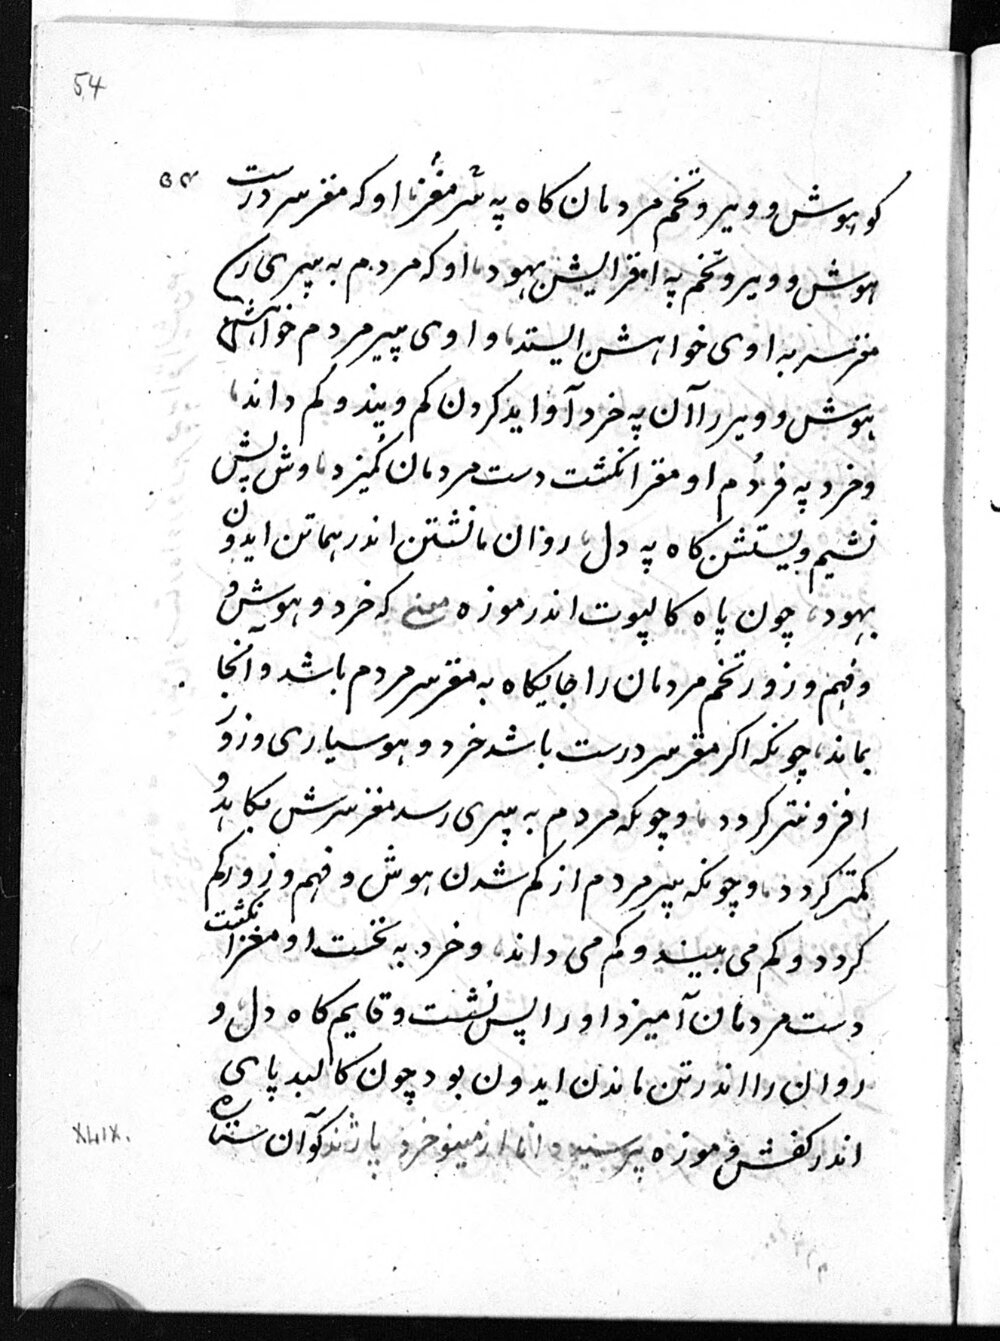 54
کو هوش و ویر و تخم مردمان کاه په شر مغز، او که مغز سر درست
هوش و ویر و تخم په افزایش بهود، او که مردم به پیری رس
مغز سر به اوی خواهشن ایستد، و اوی پیر مردم خواهش
هوش و ویر را آن په خرد آواید کردن کم ویند و کم داند،
و خرد په فردم او مغز انکشت دست مردمان کمیزد، وش پش
نشیم ویستشن کاه په دل، روان مانشتن اندر هما تن ایدون
بهود، چون پاه کالپوت اندر موزه معنی که خرد و هوش و
و فهم و زور تخم مردمان را جایکاه به مغز سر مردم باشد و آنجا
بماند، چونکه اکر مغز سر درست باشد خرد و هوسیاری و زور
افزونتر کردد، و چونکه مردم به پیری رسد مغز سرش بکاهد و
کمتر کردد، و چونکه پیر مردم از کم شدن هوش و فهم و زور کم
کردد و کم می بیند و کم می داند، و خرد به نخست او مغز انکشت
دست مردمان آمیزد او را پس نشست و قایم کاه دل و
روان را اندر تن ماندن ایدون بود چون کالبد پای
اندر کفش و موزه پرسید دانا از مینوخرد پازند کو آن ستاره
XLIX.